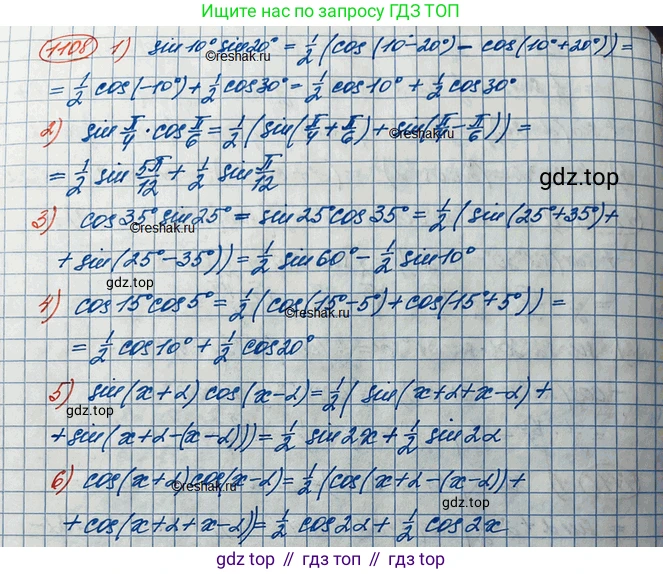 Ищите нас по запросу ГДЗ ТОП
1108 1) sin10°sin20° = 1/2 (cos(10°-20°) - cos(10°+20°)) =
= 1/2 cos(-10°) + 1/2 cos30° = 1/2 cos10° + 1/2 cos30°
©reshak.ru
2) sin π/4 · cos π/6 = 1/2 (sin(π/4 + π/6) + sin(π/4 - π/6)) =
= 1/2 sin 5π/12 + 1/2 sin π/12
gdz.top
3) cos35°sin25° = sin25°cos35° = 1/2 (sin(25°+35°)+
©reshak.ru
+ sin(25°-35°)) = 1/2 sin60° - 1/2 sin10°
gdz.top
4) cos15°cos5° = 1/2 (cos(15°-5°) + cos(15°+5°)) =
©reshak.ru
= 1/2 cos10° + 1/2 cos20°
5) sin(x+α) cos(x-α) = 1/2 (sin(x+α+x-α) +
+ sin(x+α-(x-α))) = 1/2 sin2x + 1/2 sin2α
6) cos(x+α)cos(x-α) = 1/2 (cos(x+α-(x-α)) +
©reshak.ru
gdz.top
+ cos(x+α+x-α)) = 1/2 cos2α + 1/2 cos2x
gdz.top // гдз.топ // gdz.top